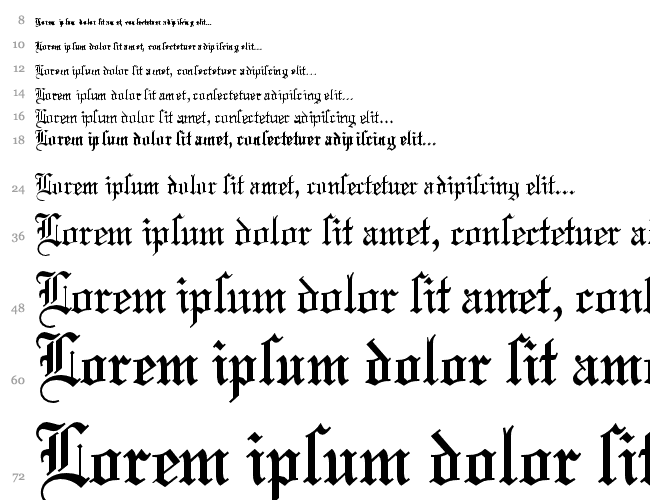 8 Lorem ipſum dolor ſit amet, conſectetuer adipiſcing elit...
10 Lorem ipſum dolor ſit amet, conſectetuer adipiſcing elit...
12 Lorem ipſum dolor ſit amet, conſectetuer adipiſcing elit...
14 Lorem ipſum dolor ſit amet, conſectetuer adipiſcing elit...
16 Lorem ipſum dolor ſit amet, conſectetuer adipiſcing elit...
18 Lorem ipſum dolor ſit amet, conſectetuer adipiſcing elit...
24 Lorem ipſum dolor ſit amet, conſectetuer adipiſcing elit...
36 Lorem ipſum dolor ſit amet, conſectetuer a
48 Lorem ipſum dolor ſit amet, conſ
60 Lorem ipſum dolor ſit am
72 Lorem ipſum dolor ſit